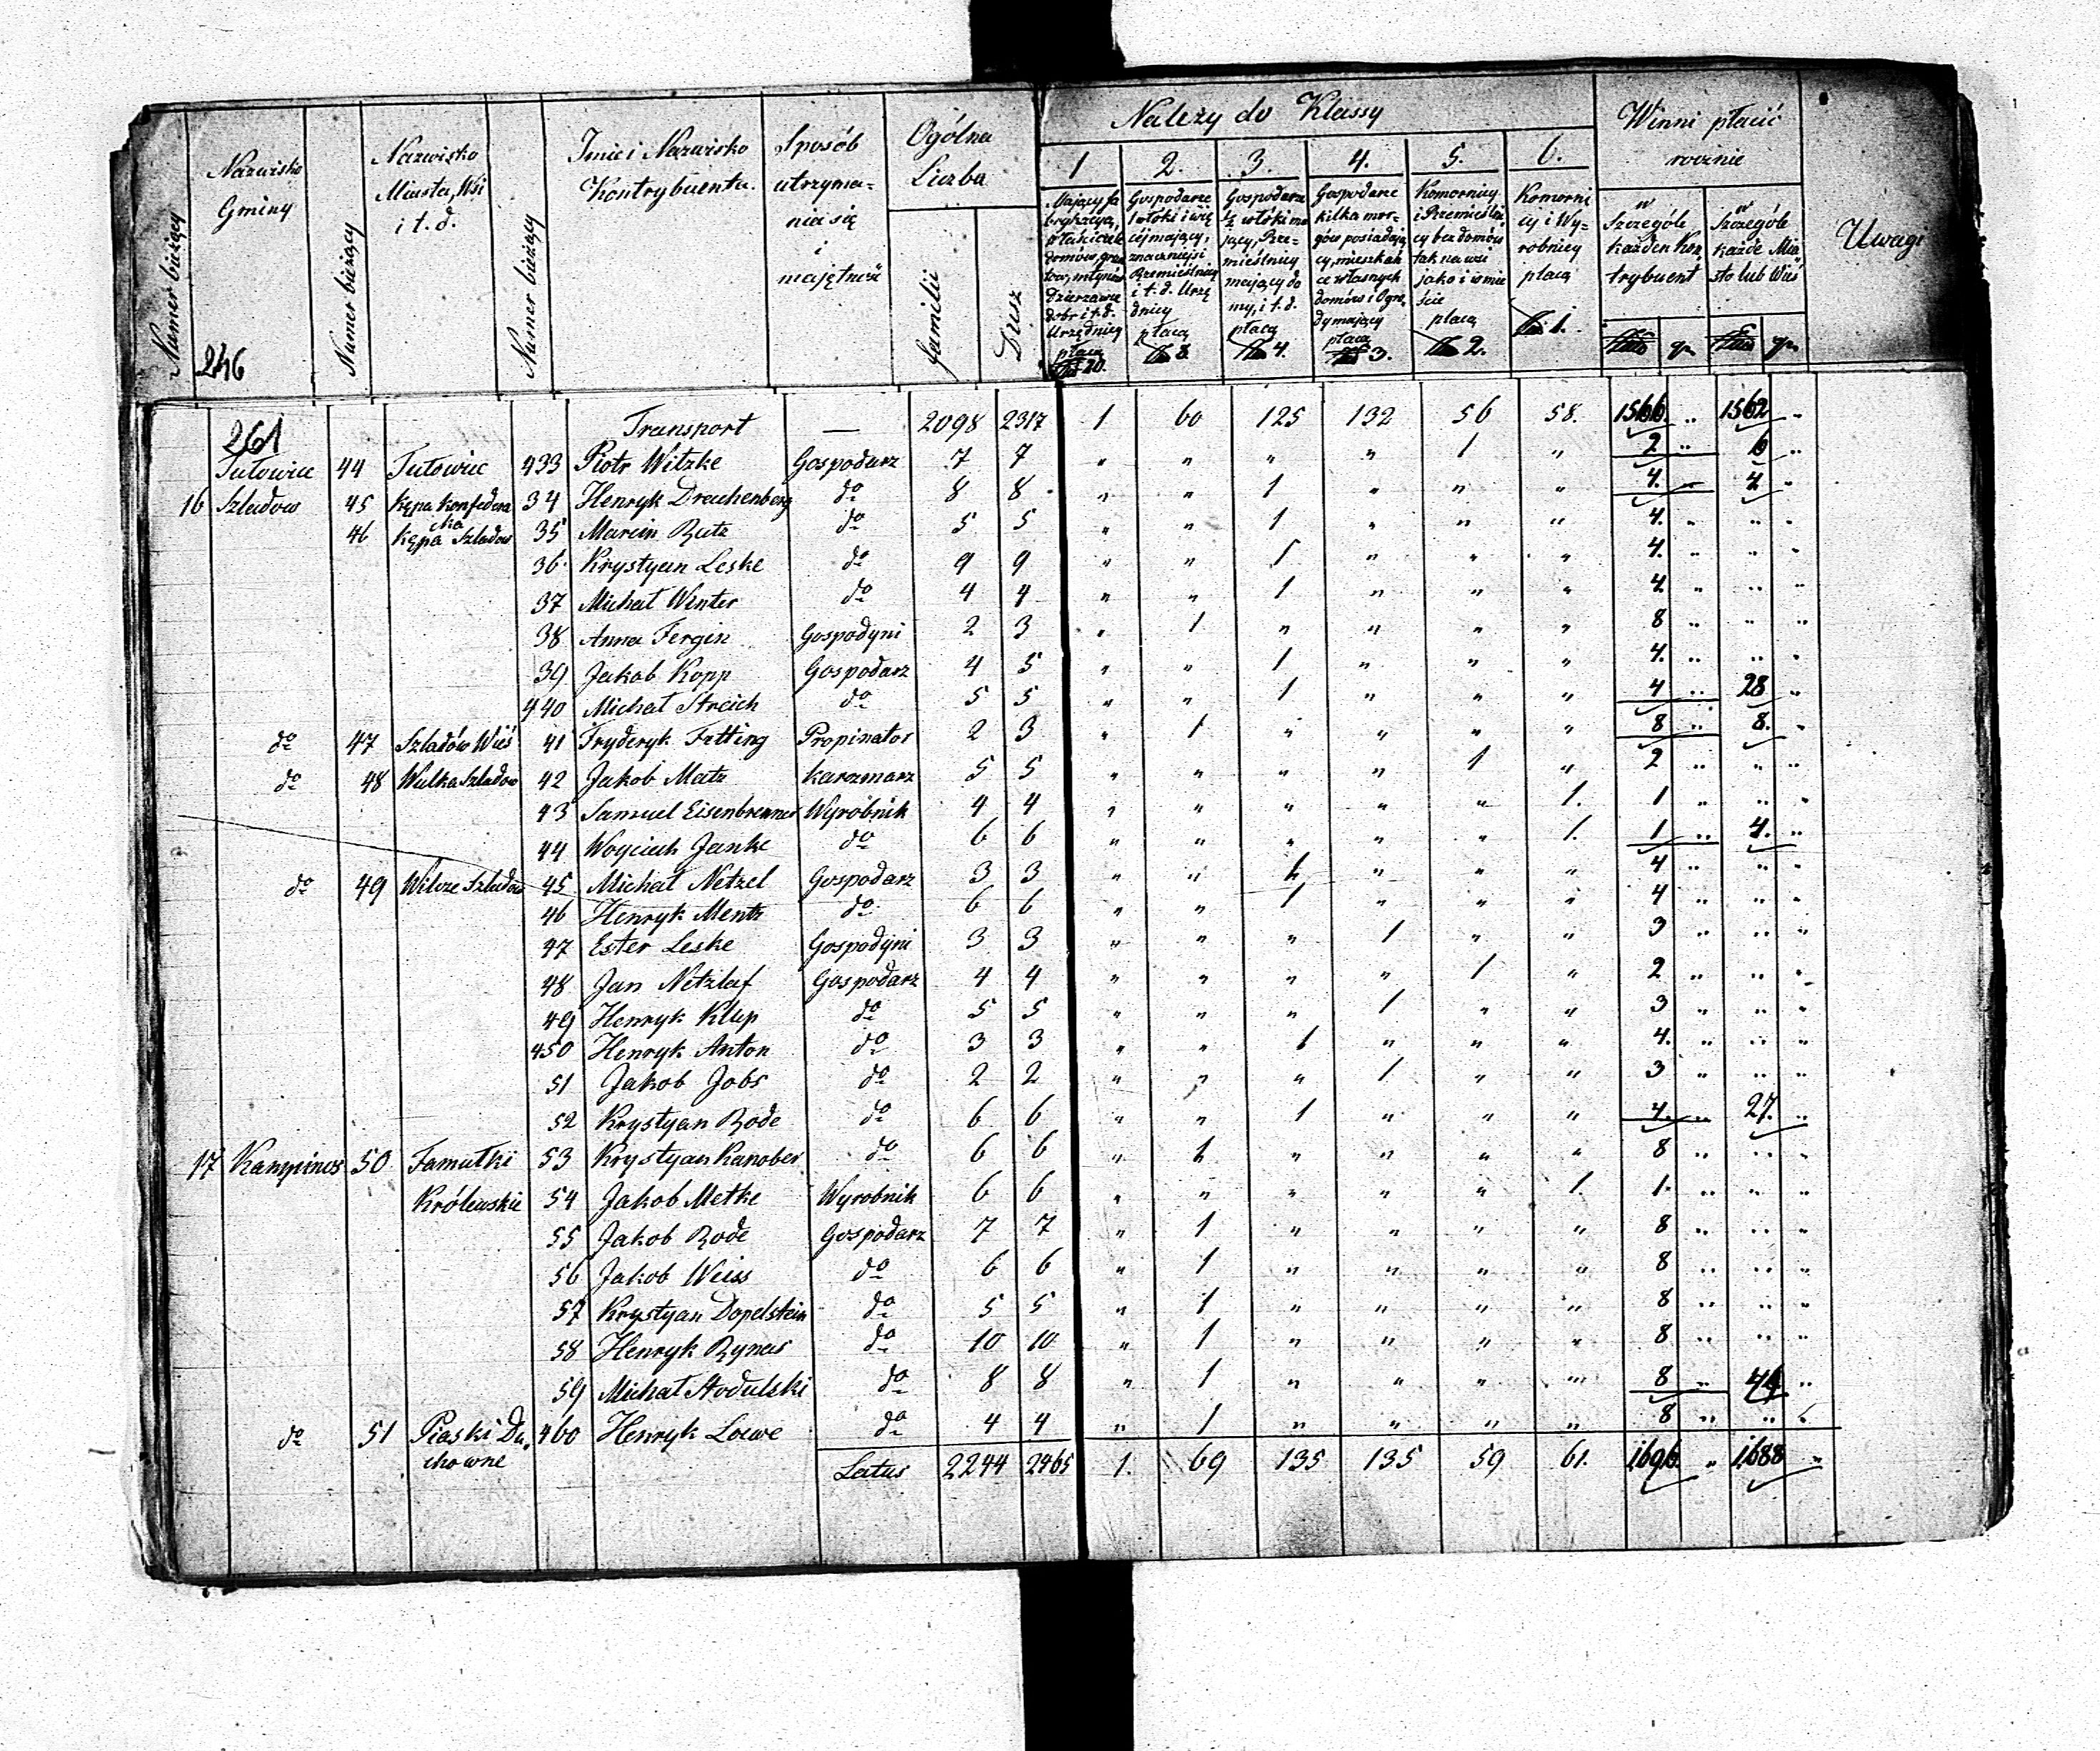 Numer bieżący
Nazwisko
Gminy
246
Numer bieżący
Nazwisko
Miasta, Wsi
i t. d.
Numer bieżący
Imie i Nazwisko
Kontrybuenta.
Sposób
utrzyma=
nia się
i
majętność
Ogólna
Liczba
Familii
Dusz
Należy do Klassy
1
Mający fa
brykacyą,
właściciele
domów, grun
tów, młynów
Dzierżawcy
dobr i t. d.
Urzędnicy
płacą
20.
2.
Gospodarze
1 włóki i wię
céj mający,
znaczniejsi
Rzemieślnicy
i t. d. Urzę
dnicy
płacą
8.
3.
Gospodarze
½ włóki ma
jący, Rze=
mieślnicy
mający do
my, i t. d.
płacą
4.
4.
Gospodarze
kilka mor=
gów posiadają
cy, mieszkań
ce własnych
domów i Ogro
dy mający
płacą
3.
5.
Komornicy
i Rzemieślni
cy bez domów
tak na wsi
jako i w mie
ście
płacą
2.
6.
Komorni
cy i Wy=
robnicy
płacą
1.
Winni płacić
rocznie
w
Szczególe
każden Kon
trybuent
gr.
w
Szczególe
każde Mia
sto lub Wieś
gr.
Uwagi
261
Transport — 2098 2317 1 60 125 132 56 58. 1566. „ 1562 „
Tułowice 44 Tułowice 433 Piotr Witzke Gospodarz 7 7 „ „ „ „ 1 „ 2 „ 6 „
16 Szladow 45 Kępa Konfedera 34 Henryk Drachenberg do 8 8 „ „ 1 „ „ „ 4. „ 4 „
cka
46 Kępa Szladow 35 Marcin Rutz do 5 5 „ „ 1 „ „ „ 4. „ „ „
36. Krystyan Leske do 9 9 „ „ 1 „ „ „ 4. „ „ „
37 Michał Winter do 4 4 „ „ 1 „ „ „ 4 „ „ „
38 Anna Fergin Gospodyni 2 3 „ 1 „ „ „ „ 8 „ „ „
39 Jakob Kopp Gospodarz 4 5 „ „ 1 „ „ „ 4. „ „ „
440 Michał Streich do 5 5 „ „ 1 „ „ „ 4 „ 28 „
do 47 Szladów Wieś 41 Fryderyk Fetting Propinator 2 3 „ 1 „ „ „ „ 8 „ 8. „
do 48 Wulka Szladow 42 Jakob Matz Karczmarz 5 5 „ „ „ „ 1 „ 2 „ „ „
43 Samuel Eisenbrenner Wyrobnik 4 4 „ „ „ „ „ 1. 1 „ „ „
44 Woyciech Janke do 6 6 „ „ „ „ „ 1. 1 „ 4. „
do 49 Wilcze Szladow 45 Michał Netzel Gospodarz 3 3 „ „ 1 „ „ „ 4 „ „ „
46 Henryk Mentz do 6 6 „ „ 1 „ „ „ 4 „ „ „
47 Ester Leske Gospodyni 3 3 „ „ „ 1 „ „ 3 „ „ „
48 Jan Netzlaf Gospodarz 4 4 „ „ „ „ 1 „ 2 „ „ „
49 Henryk Klup do 5 5 „ „ „ 1 „ „ 3 „ „ „
450 Henryk Anton do 3 3 „ „ 1 „ „ „ 4. „ „ „
51 Jakob Jobs do 2 2 „ „ „ 1. „ „ 3 „ „ „
52 Krystyan Rode do 6 6 „ „ 1 „ „ „ 4. „ 27. „
17 Kampinos 50 Famułki 53 Krystyan Kanober do 6 6 „ 1 „ „ „ „ 8 „ „ „
Królewskie 54 Jakob Metke Wyrobnik 6 6 „ „ „ „ „ 1. 1. „ „ „
55 Jakob Rode Gospodarz 7 7 „ 1 „ „ „ „ 8 „ „ „
56 Jakob Weiss do 6 6 „ 1 „ „ „ „ 8 „ „ „
57 Krystyan Dopelstein do 5 5 „ 1 „ „ „ „ 8 „ „ „
58 Henryk Rynas do 10 10 „ 1 „ „ „ „ 8 „ „ „
59 Michał Stodulski do 8 8 „ 1 „ „ „ „ 8 „ „
do 51 Piaski Du, 460 Henryk Loewe do 4 4 „ 1 „ „ „ „ 8 „ „ „
chowne
Latus 2244 2465 1. 69 135 135 59 61. 1696. „ 1688 „